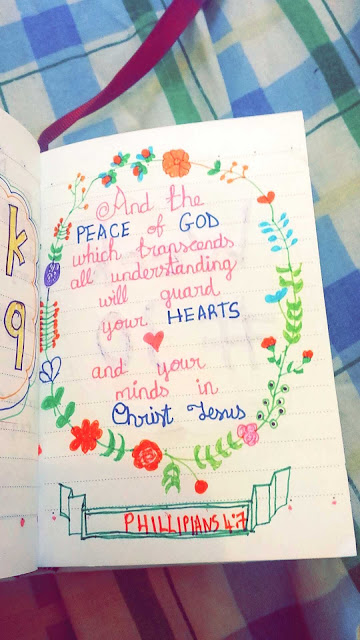 k
9
@And the
PEACE of GOD
which transcends
all understanding
will guard
your HEARTS
and your
minds in
Christ Jesus
PHILLIPIANS 4:7